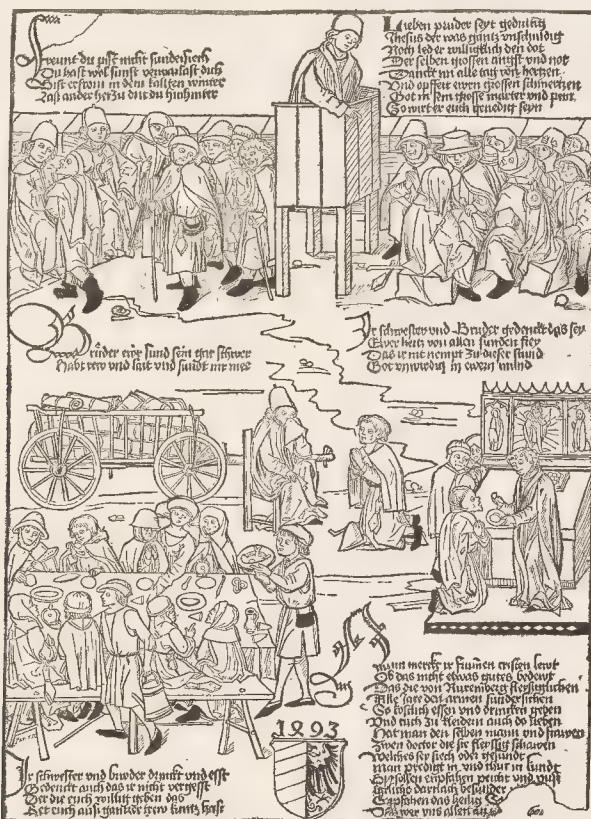 Freunt du pist nicht sundersiech
Du hast wol sunst verwarlost dich
Bist erfrorn in dem kaltgen winter
Las ander herzu drit du hinhinter
Lieben pruder seyt gedultig
Jhesus der was gantz vnschuldig
Noch led er williglich den dot
Der selben grossen angst vnd not
Danckt im alle tag von hertzen
Vnd opffert ewrn grossen schmertzen
Got in sein grosse marter vnd pein
So wirt er euch genedig seyn
Bruder ewr sund sein gar schwer
Habt rew vnd lait vnd sundt nit mer
Ir schwester vnd Bruder gedenckt das sey
Ewer hertz von allen sunden frey
Das ir nit nempt zu dieser stund
Got vnwirdig in ewern mund
Nun merckt ir frumen cristen lewt
Ob das nicht etwas gutes bedewt
Das die von Nuremberg fleyssiglichen
Alle jare den armen sundersiechen
So kostlich essen vnd drincken geben
Vnd tuch zu kleidern auch do neben
Hat man den selben mann vnd frawen
Zwen doctor die sie fleyssig schawen
Welches sey siech oder gesundt
Man predigt in vnd thut in kundt
Sy sollen empfahen peicht vnd
darnach besunder
Empfahen das heylig
vns allen
1493
Ir schwester vnd bruder drinckt vnd esst
Gedenckt auch das ir nicht vergesst
Der die euch willig geben das